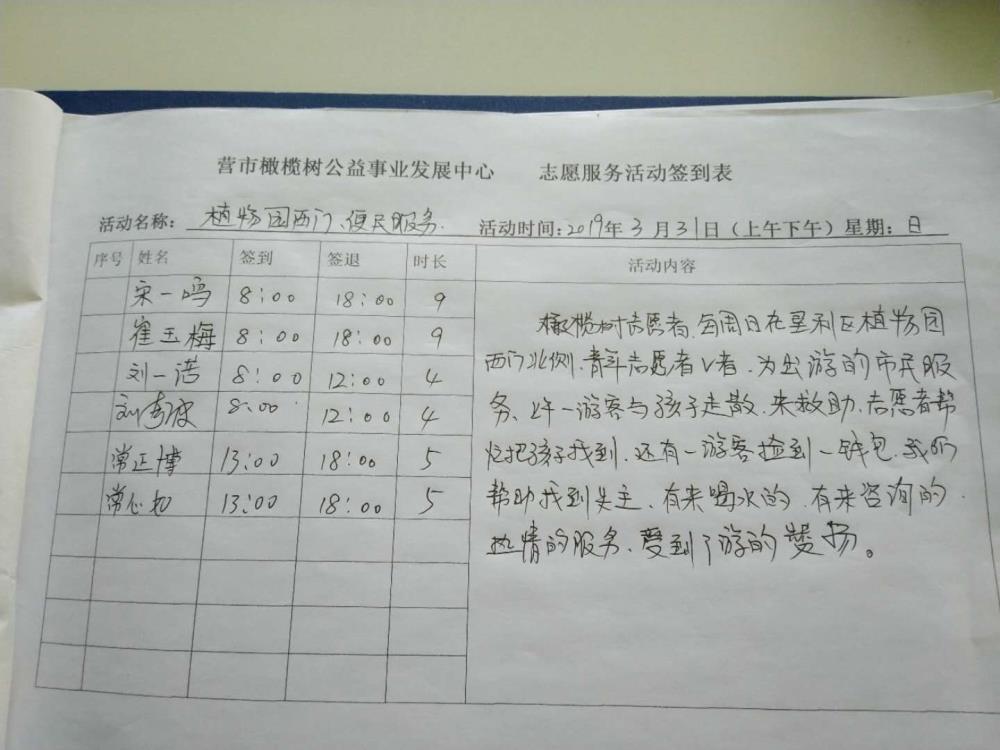 营市橄榄树公益事业发展中心 志愿服务活动签到表
活动名称：植物园西门、便民服务. 活动时间:2019年3月31日（上午下午）星期：日
序号 姓名 签到 签退 时长 活动内容
宋一鸣 8:00 18:00 9
崔玉梅 8:00 18:00 9
刘一诺 8:00 12:00 4
刘 8:00 12:00 4
常正博 13:00 18:00 5
常心如 13:00 18:00 5
橄榄树志愿者.每周日在垦利区植物园
西门北侧.青年志愿者V者.为出游的市民服
务、上午一游客与孩子走散.来救助.志愿者帮
忙把孩子找到.还有一游客捡到一钱包.我们
帮助找到失主.有来喝水的.有来咨询的.
热情的服务、受到了游的赞扬。